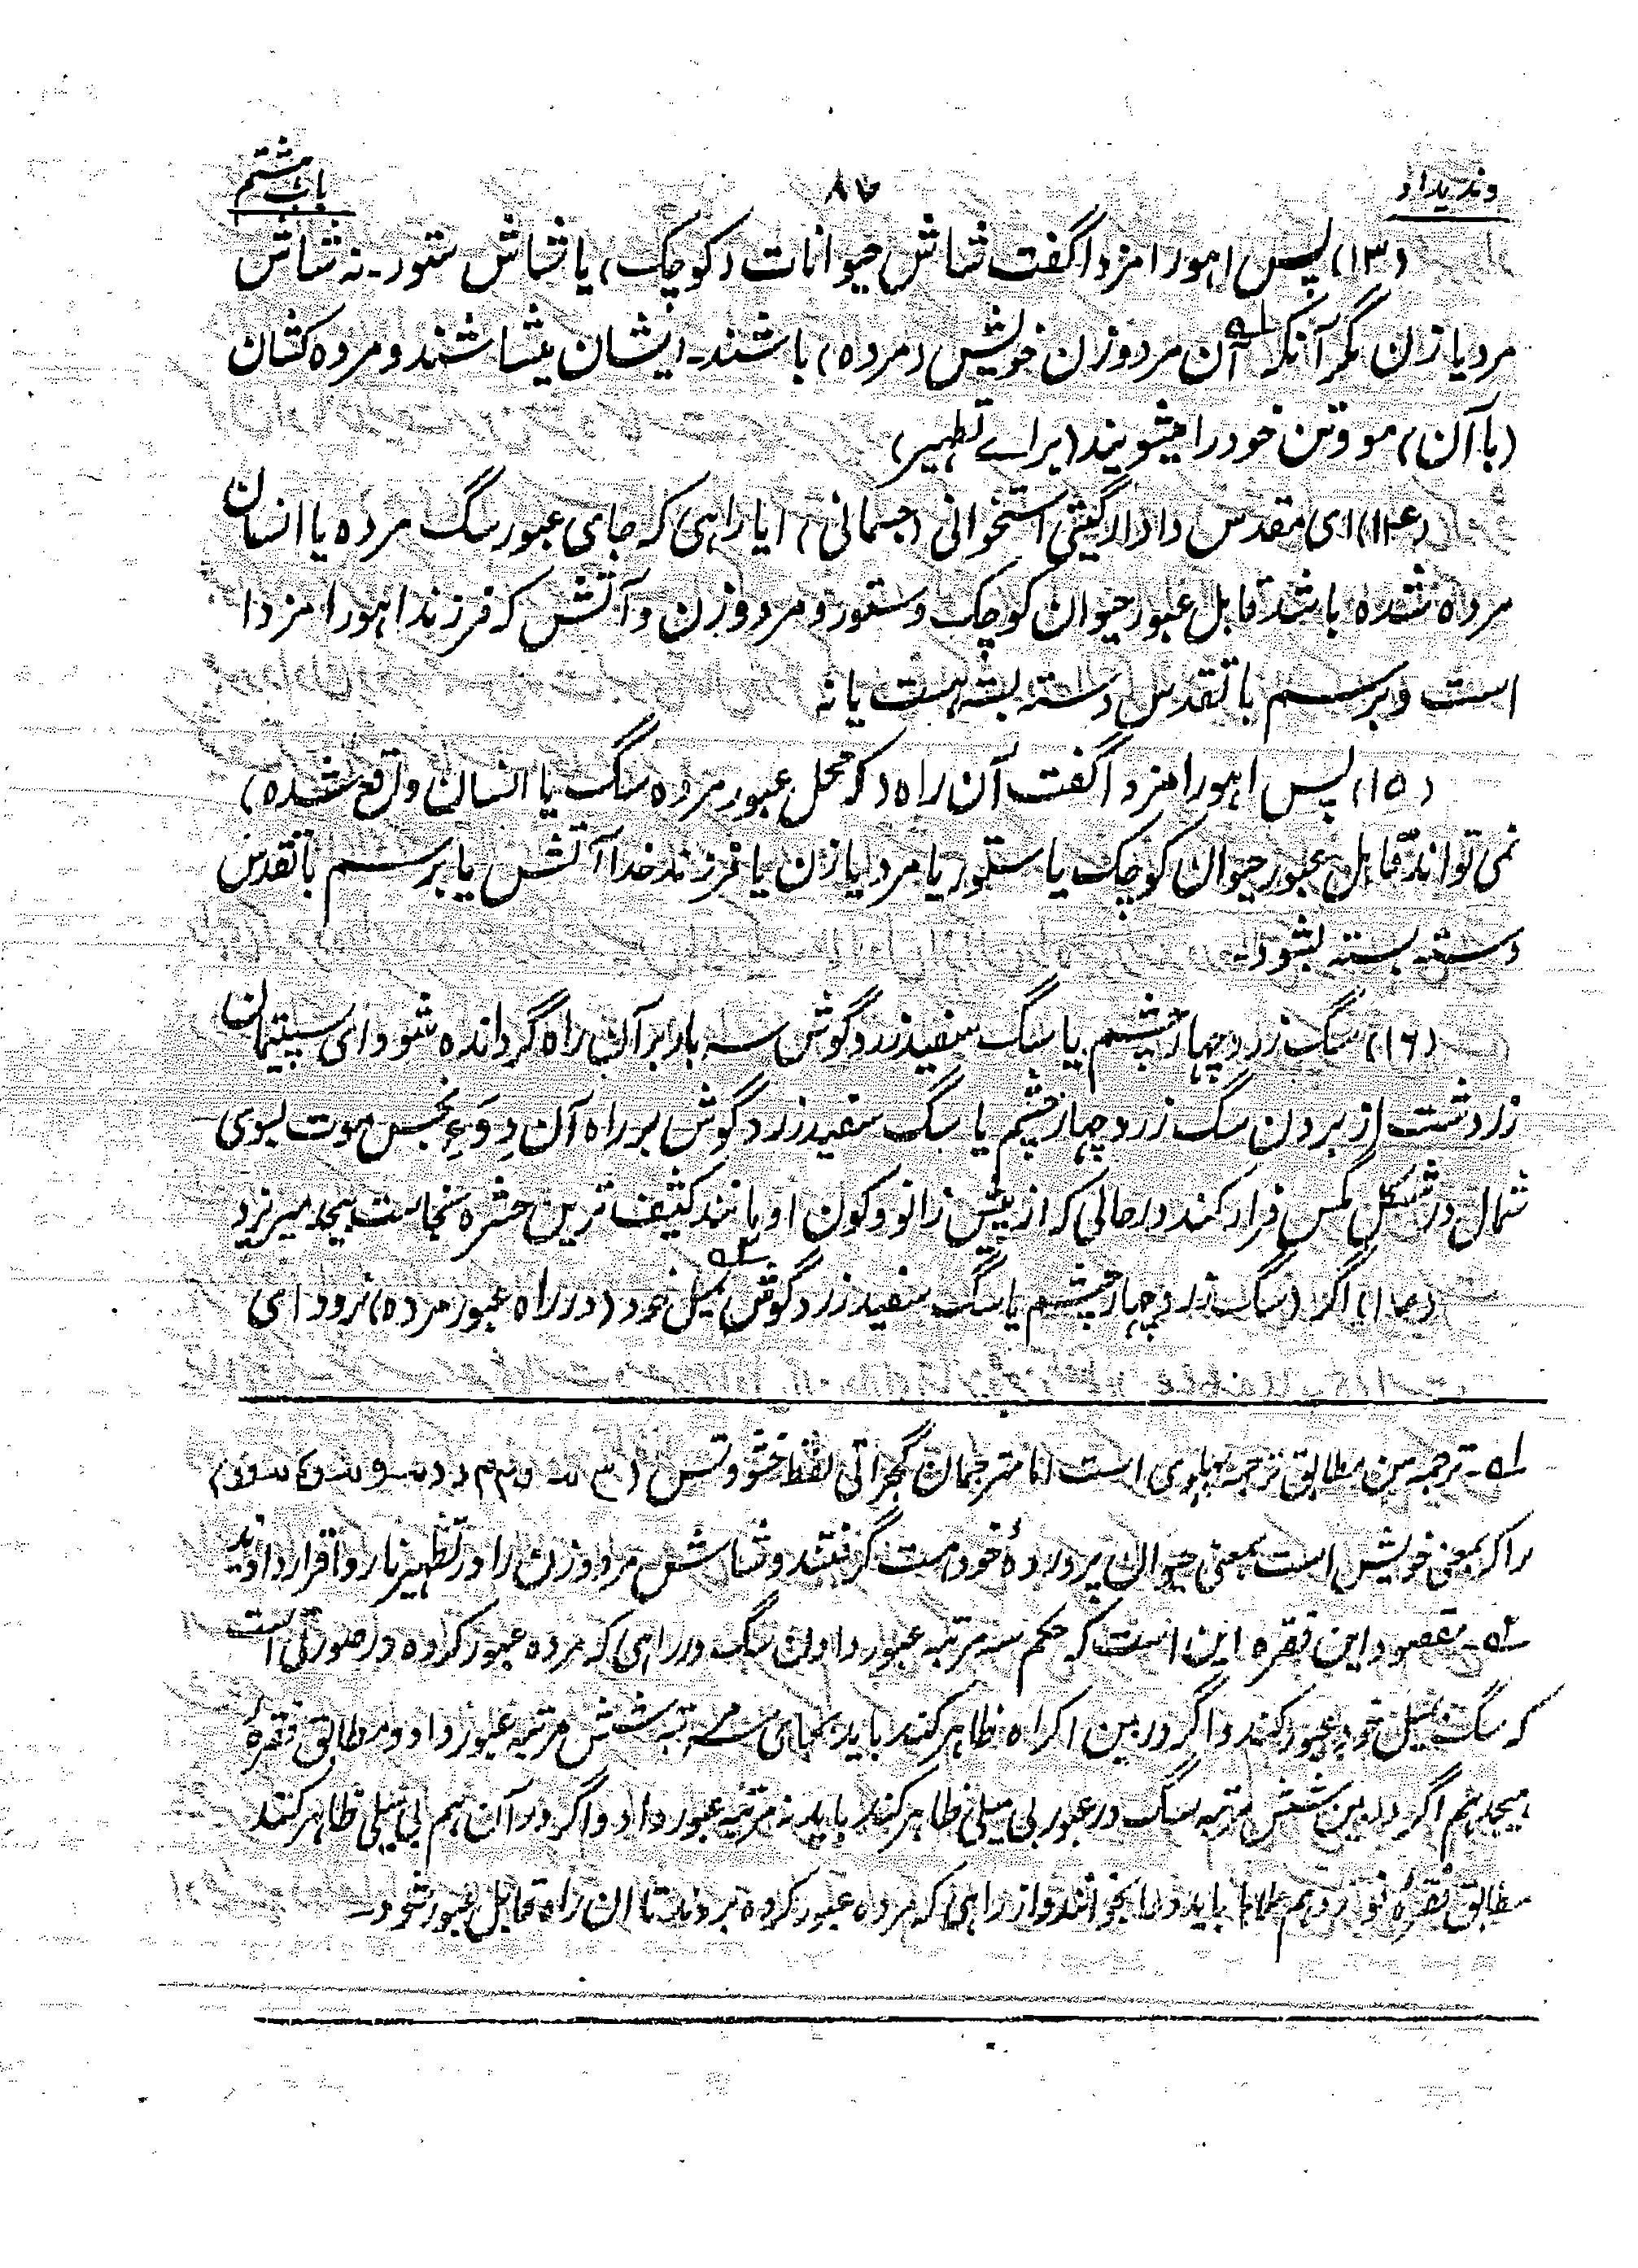 وندیداد ۸۷ باب هشتم
(۱۳) پس اهورامزدا گفت شاش حیوانات (کوچک) یا شاش ستور - نه شاش
مرد یا زن مگر آنکه آن مرد و زن خویش (مرده) باشند - ایشان بشاشند و مرده کشان
(با آن) مو و تن خود را میشویند (برای تطهیر)
(۱۴) ای مقدس دادار گیتی استخوانی (جسمانی) ایا راهی که جای عبور سگ مرده یا انسان
مرده شده باشد قابل عبور حیوان کوچک و ستور و مرد و زن و آتش که فرزند اهورامزدا
است و برسم با تقدس دسته بسته هست یا نه
(۱۵) پس اهورامزدا گفت آن راه (که محل عبور مرده سگ یا انسان واقع شده)
نمی تواند قابل عبور حیوان کوچک یا ستور یا مرد یا زن یا فرزند خدا آتش یا برسم با تقدس
دسته بسته بشود -
(۱۶) سگ زرد چهار چشم یا سگ سفید زرد گوش سه بار بر آن راه گردانده شود ای سپیتمان
زردشت از بردن سگ زرد چهار چشم یا سگ سفید زرد گوش بر راه آن دِوَءِ نجس موت بسوی
شمال در شکل مگس فرار کند در حالی که از پیش زانو و کون او مانند کثیف ترین حشره نجاست بیحد میریزد
(۱۷) اگر (سگ زرد چهار چشم یا سگ سفید زرد گوش) بمیل خود (در راه عبور مرده) نرود ای
۱ه - ترجمه من مطابق ترجمه پهلوی است اما مترجمان گجراتی لفظ خشودتس
را که بمعنی خویش است بمعنی حیوان پرورده خود مست گرفتند و شاش مرد و زن را در تطهیر ناروا قرار دادند
۲ه - مقصود این فقره این است که حکم سه مرتبه عبور دادن سگ در راهی که مرده عبور کرده در صورتی است
که سگ بمیل خود عبور کند و اگر در بین اکراه ظاهر کند باید بجای سه مرتبه شش مرتبه عبور داد و مطابق فقرهٔ
هیجدهم اگر در بین شش مرتبه سگ در عبور بی میلی ظاهر کند باید نه مرتبه عبور داد و اگر در آن هم بی میلی ظاهر کند
مطابق فقرهٔ نوازدهم ملاها باید دعا بخوانند و از راهی که مرده عبور کرده بروند تا ان راه قابل عبور شود -